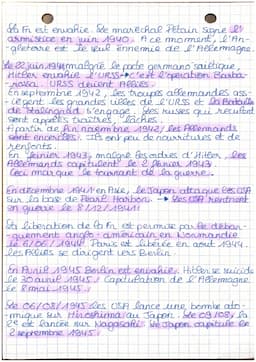 La Fr est envahie. Le maréchal Pétain signe l'
armistice en juin 1940. A ce moment, l'An-
gleterre est le seul ennemie de l'Allemagne.
Le 22 juin 1941 malgré le pacte germano soviétique,
Hitler envahie l'URSS → c'est l'opération Barba-
rossa. URSS devient Alliés.
En septembre 1942, les troupes allemandes ass-
iègent les grandes villes de l'URSS et la Bataille
de Stalingrad s'engage. Les russes qui reculent
sont appelés traîtres, lâches.
A partir de fin novembre 1942, les Allemands
sont encerclés. Ils ont peu de nourritures et de
renforts.
En février 1943, malgré les ordres d'Hitler, les
Allemands capitulent le 2 février 1943.
Ceci marque le tournant de la guerre.
En décembre 1941 en Asie, le Japon attaque les USA
sur la base de Pearl Harbor. → Les USA rentrent
en guerre le 8/12/1941.
La libération de la Fr est permise par le débar-
quement anglo-américain en Normandie
le 6/06/1944. Paris est libérée en aout 1944.
les Alliés se dirigent vers Berlin.
En Avril 1945 Berlin est envahie. Hitler se suicide
le 30 avril 1945. Capitulation de l'Allemagne
le 8 mai 1945.
Le 06/08/1945 les USA lance une bombe ato-
mique sur Hiroshima au Japon. Le 09/08, la
2e est lancée sur Nagasaki. Le Japon capitule le
2 septembre 1945.